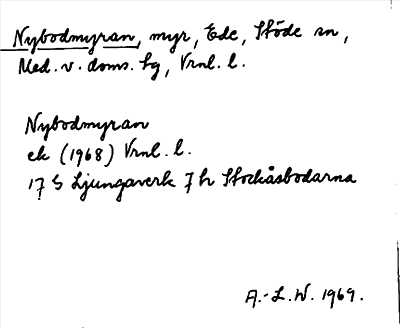 Nybodmyran, myr, Ede, Stöde sn,
Med. v. doms. hg, Vrnl. l.
Nybodmyran
ek (1968) Vrnl. l.
17 G Ljungaverk 7 h Stockåsbodarna
A.-L.W. 1969.